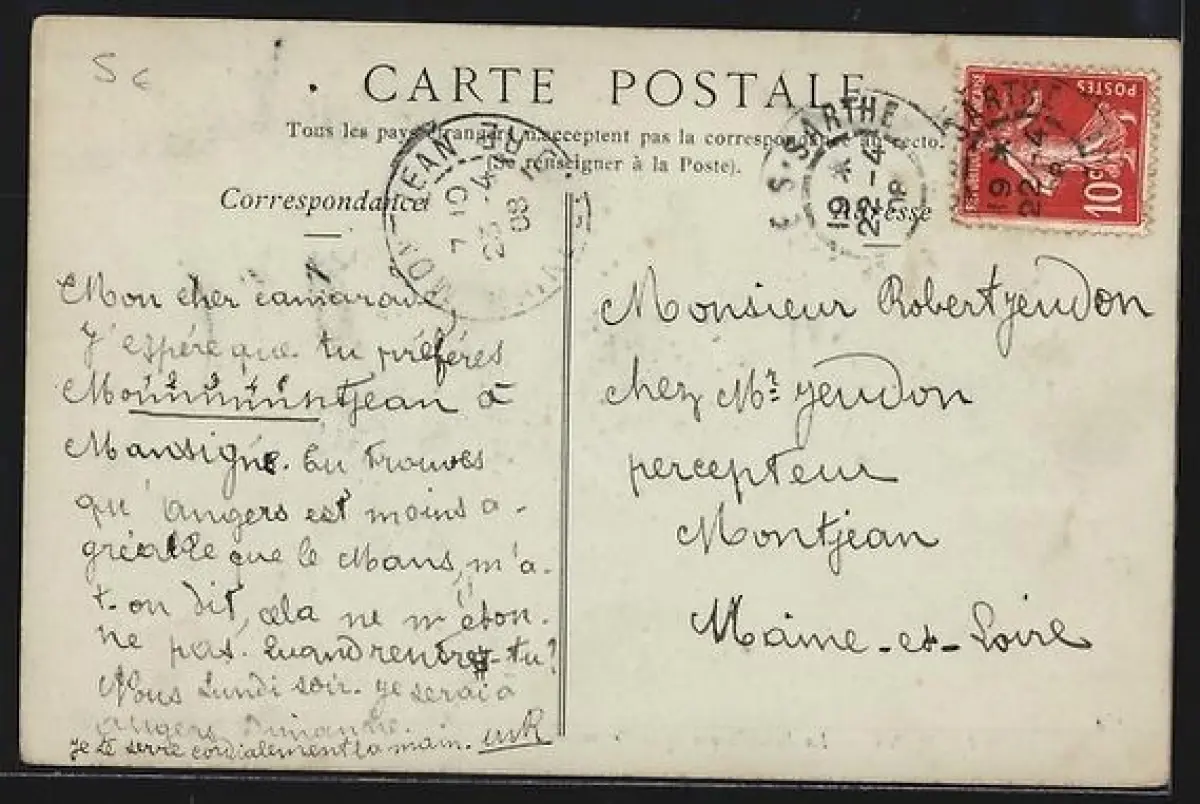 5 €
CARTE POSTALE
Tous les pays étrangers n'acceptent pas la correspondance au recto.
(Se renseigner à la Poste).
Correspondance
Adresse
POSTES
10c
SARTHE
19 *
22-4
08
SARTHE
19 *
22-4
MONTJEAN
7 10
23-4
08
Mon cher camarade,
J'espère que tu préfères
Mouuuuuuntjean à
Mansigné. Tu trouves
qu'Angers est moins a-
gréable que le Mans, m'a-
t-on dit, cela ne m'éton-
ne pas. Quand rentres-tu?
Nous Lundi soir. Je serai à
Angers Dimanche.
Je te serre cordialement la main. MR
Monsieur Robert Jendon
chez Mr Jendon
percepteur
Montjean
Maine-et-Loire